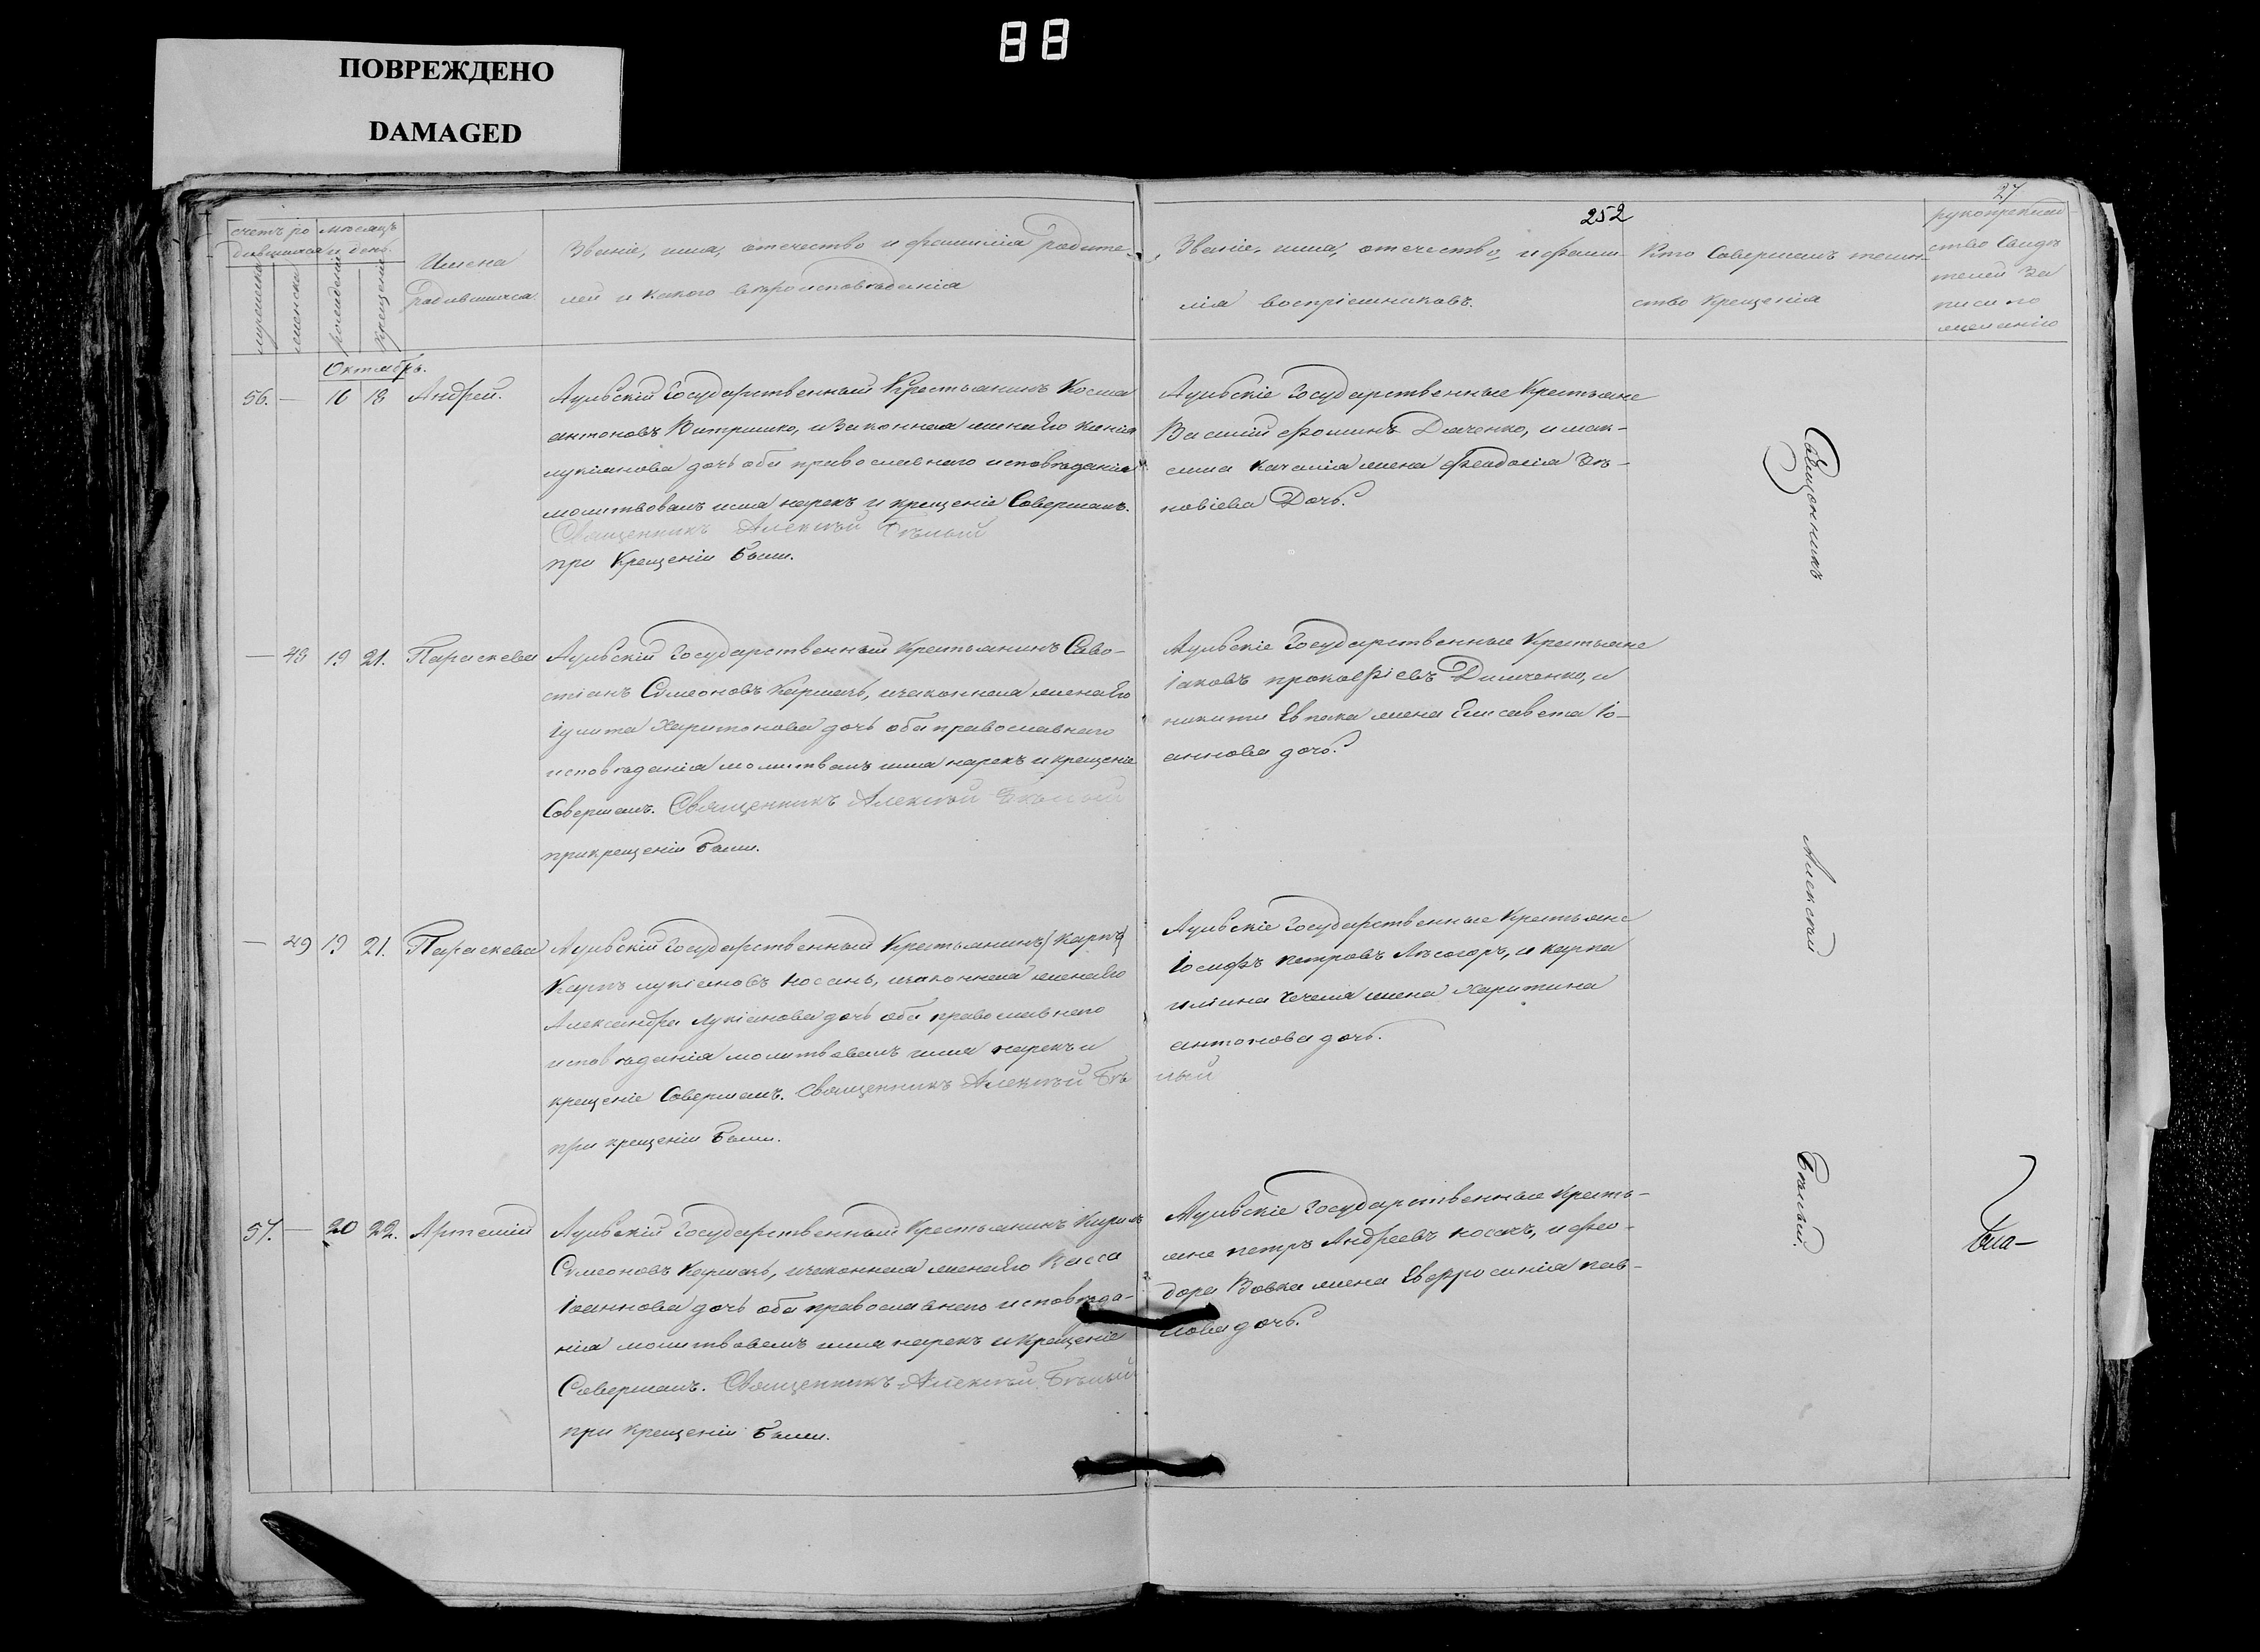 88
ПОВРЕЖДЕНО
DAMAGED
252
27
счетъ ро
дившихся
мѣсяцъ
и день.
мужеска
женска
рожденія
крещенія
Имена
родившихся.
Званіе, имя, отечество и фамилія родите-
лей и какого вѣроисповѣданія
Званіе, имя, отечество, и фами-
лія воспріемниковъ.
Кто совершалъ таин-
ство крещенія
рукоприклад-
ство свидѣ
телей за
писи по
желанію
Октябрь.
56. — 16 18 Андрей.
Государственный Крестьянинъ Косма
антоновъ и законная жена Его
лукіанова дочь оба православнаго исповѣданія
молитвовалъ имя нарекъ и крещеніе Совершалъ.
Священникъ Алексѣй Бѣлый
при Крещеніи были.
Государственные Крестьяне
Василій Фоминъ Дяченко, и мак-
сима жена Феодосія Зѣ-
новіева Дочь.
— 48 19 21. Параскева
Государственный Крестьянинъ Саво-
стіанъ Симеоновъ и законная жена Его
Іулита Харитонова дочь оба православнаго
исповѣданія молитвалъ имя нарекъ и крещеніе
Совершалъ. Священникъ Алексѣй Бѣлый
при крещеніи были.
Государственные Крестьяне
Іаковъ прокофіевъ и
никиты жена Елисавета Іо-
аннова дочь.
— 49 19 21. Параскева
Государственный Крестьянинъ Карпъ
Карпъ лукіановъ Носань, и законная жена Его
Александра Лукіанова дочь оба православнаго
исповѣданія молитвовалъ имя нарекъ и
крещеніе Совершалъ. Священникъ Алексѣй Бѣ
лый
при крещеніи были.
Государственные Крестьяне
Іосифъ петровъ Лисогоръ, и карпа
жена Харитина
антонова дочь.
57. — 20 22. Артемій
Государственный Крестьянинъ Кирилъ
Симеоновъ и законная жена Его Васса
Іоаннова дочь оба православнаго исповѣда-
нія молитвовалъ имя нарекъ и Крещеніе
Совершалъ. Священникъ Алексѣй Бѣлый
при Крещеніи были.
Государственные Кресть-
яне петръ Андреевъ носань, и фео-
дора Вовка жена Евфросинія пав-
лова дочь.
Священникъ
Алексѣй
Бѣлый.